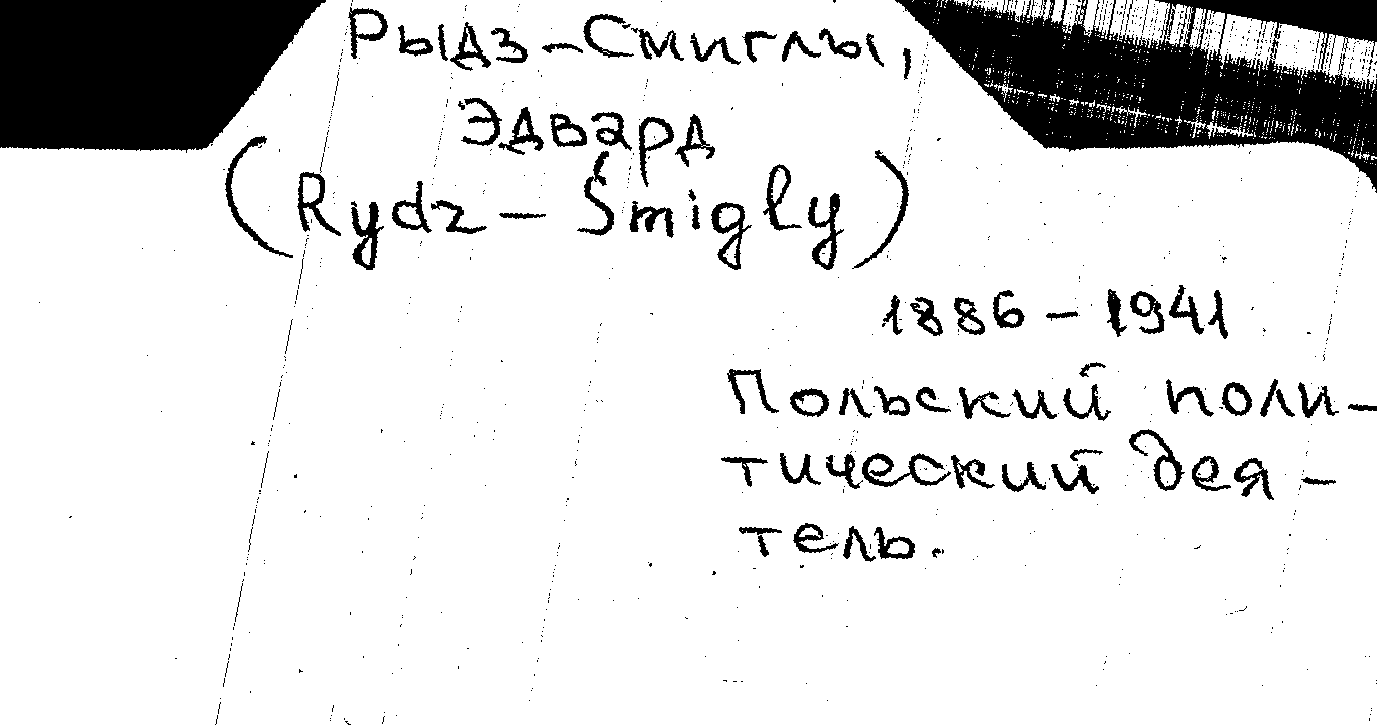 Рыдз-Смиглы,
Эдвард
(Rydz-Śmigly)
1886-1941
Польский поли-
тический дея-
тель.